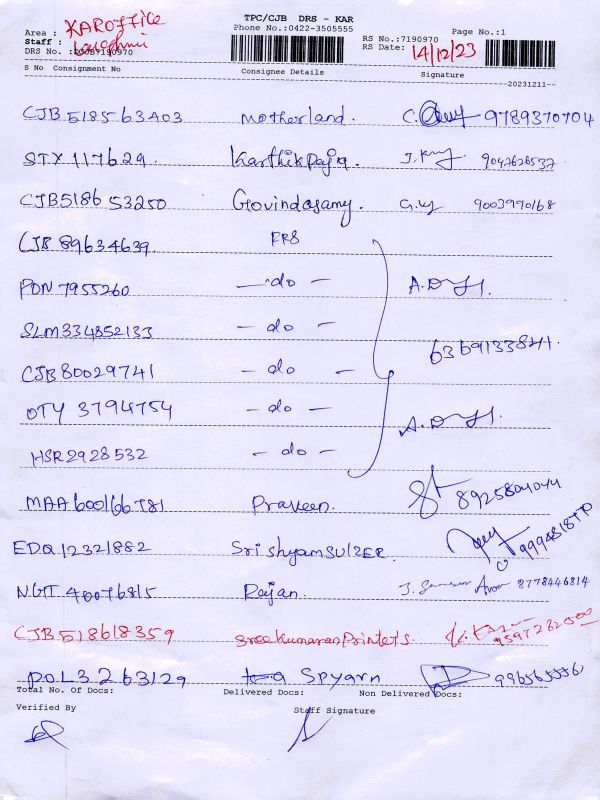 TPC/CJB DRS - KAR
Phone No.:0422-3505555
Area : KAR OFFICE
Staff :
DRS No. :D0087190970
RS No.:7190970
RS Date: 14/12/23
Page No.:1
S No Consignment No Consignee Details Signature
--20231211--
CJB 518563403 Motherland. 9789370704
STX 117629. KarthikRaja 9042626537
CJB5186 53250 Govindasamy. 9003990168
CJB 89634639. FRS
PDN 7955260 - do - A.D
SLM334852133 - do -
CJB 80029741 - do - 6369133841.
OTY 3794754 - do -
HSR2928532 - do - A.D
MAA600166781 Praveen. 8925804044
EDQ12321882 Sri shyam SULZER.
NGT 40076815 Rajan. 8778446814
CJB518618359 Sree kumaran Printer's. 9597282500
POL3263129 Spyarn
Total No. Of Docs: Delivered Docs: Non Delivered Docs:
Verified By Staff Signature